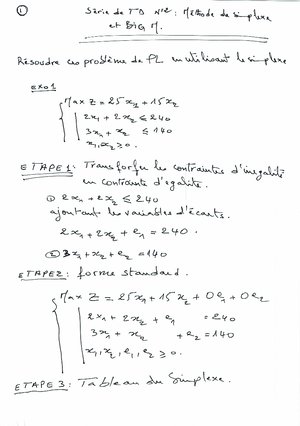 1
Série de TD N°2 : Méthode de simplexe
et BIG M.
Résoudre ces problème de PL en utilisant le simplexe
EXO1
Max Z = 25x₁ + 15x₂
2x₁ + 2x₂ ≤ 240
3x₁ + x₂ ≤ 140
x₁, x₂ ≥ 0
ETAPE1: Transforfer les contraintes d'inegalité
en contrainte d'egalité.
① 2x₁ + 2x₂ ≤ 240
ajoutant les variables d'écarts.
2x₁ + 2x₂ + e₁ = 240.
② 3x₁ + x₂ + e₂ = 140
ETAPE2: forme standard.
Max Z = 25x₁ + 15x₂ + 0e₁ + 0e₂
2x₁ + 2x₂ + e₁ = 240
3x₁ + x₂ + e₂ = 140
x₁, x₂, e₁, e₂ ≥ 0.
ETAPE 3: Tableau du Simplexe.